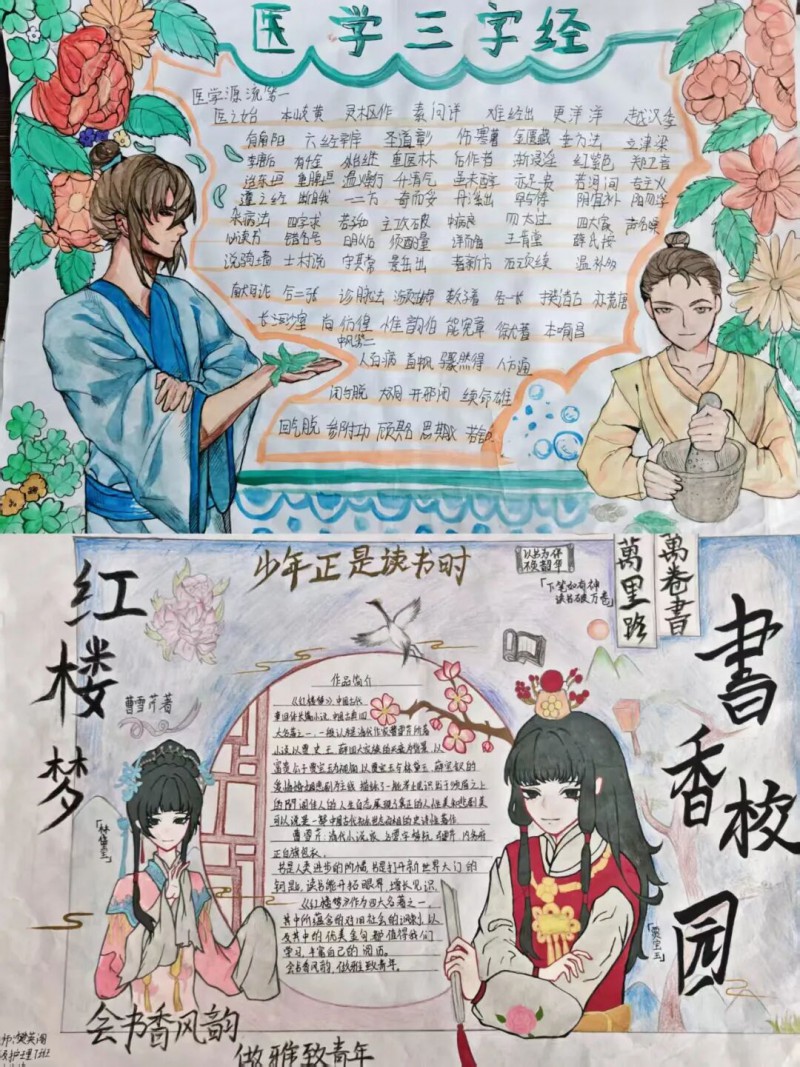 医学三字经
医学源流第一
医之始 本岐黄 灵枢作 素问详 难经出 更洋洋 越汉季
六经辞 圣道彰 伤寒著 金匮藏 垂方法 立津梁
李唐后 有千金 外台继 重医林 后作者 渐浸淫 红紫色 郑卫音
迨东垣 重脾胃 温燥行 升清气 虽未醇 亦足贵 若河间 专主火
遵之经 断自我 一二方 奇而妥 丹溪出 罕与俦 阴宜补 阳勿浮
杂病法 四字求 若子和 主攻破 中病良 勿太过 四大家 声名噪
必读书 错名号 明以后 须酌量 详而备 王肯堂 薛氏按
说骑墙 士材说 守其常 景岳出 著新方 石顽续 温补乡
献可论 合二张 诊脉法 濒湖昂 数子者 各一长
长沙室 尚彷徨 惟韵伯 能宪章 徐尤著 本喻昌
中风第二
人百病 首中风 骤然得 八方通
闭与脱 大不同 开邪闭 续命雄
回气脱 参附功 顾其名 思其义
少年正是读书时
以书为伴
不负韶华
「下笔如有神
读书破万卷」
萬里路
萬卷書
红楼梦
曹雪芹著
「林黛玉」
「贾宝玉」
書香校园
作品简介
《红楼梦》,中国古代
章回体长篇小说,中国古典四
大名著之一,一般认为是清代作家曹雪芹所著
小说以贾、史、王、薛四大家族的兴衰为背景,以
富贵公子贾宝玉为视角,以贾宝玉与林黛玉、薛宝钗的
爱情婚姻悲剧为主线,描绘了一批举止见识出于须眉之上
的闺阁佳人的人生百态,展现了真正的人性美和悲剧美
曹雪芹,清代小说家
正白旗包衣。
书是人类进步的阶梯,书是打开新世界大门的
钥匙,读书能开拓眼界,增长见识。
《红楼梦》作为四大名著之一,
其中所蕴含的对旧社会的讽刺,以
及其中的优美金句都值得我们
学习,丰富自己的阅历。
会书香风韵,做雅致青年。
会书香风韵
做雅致青年